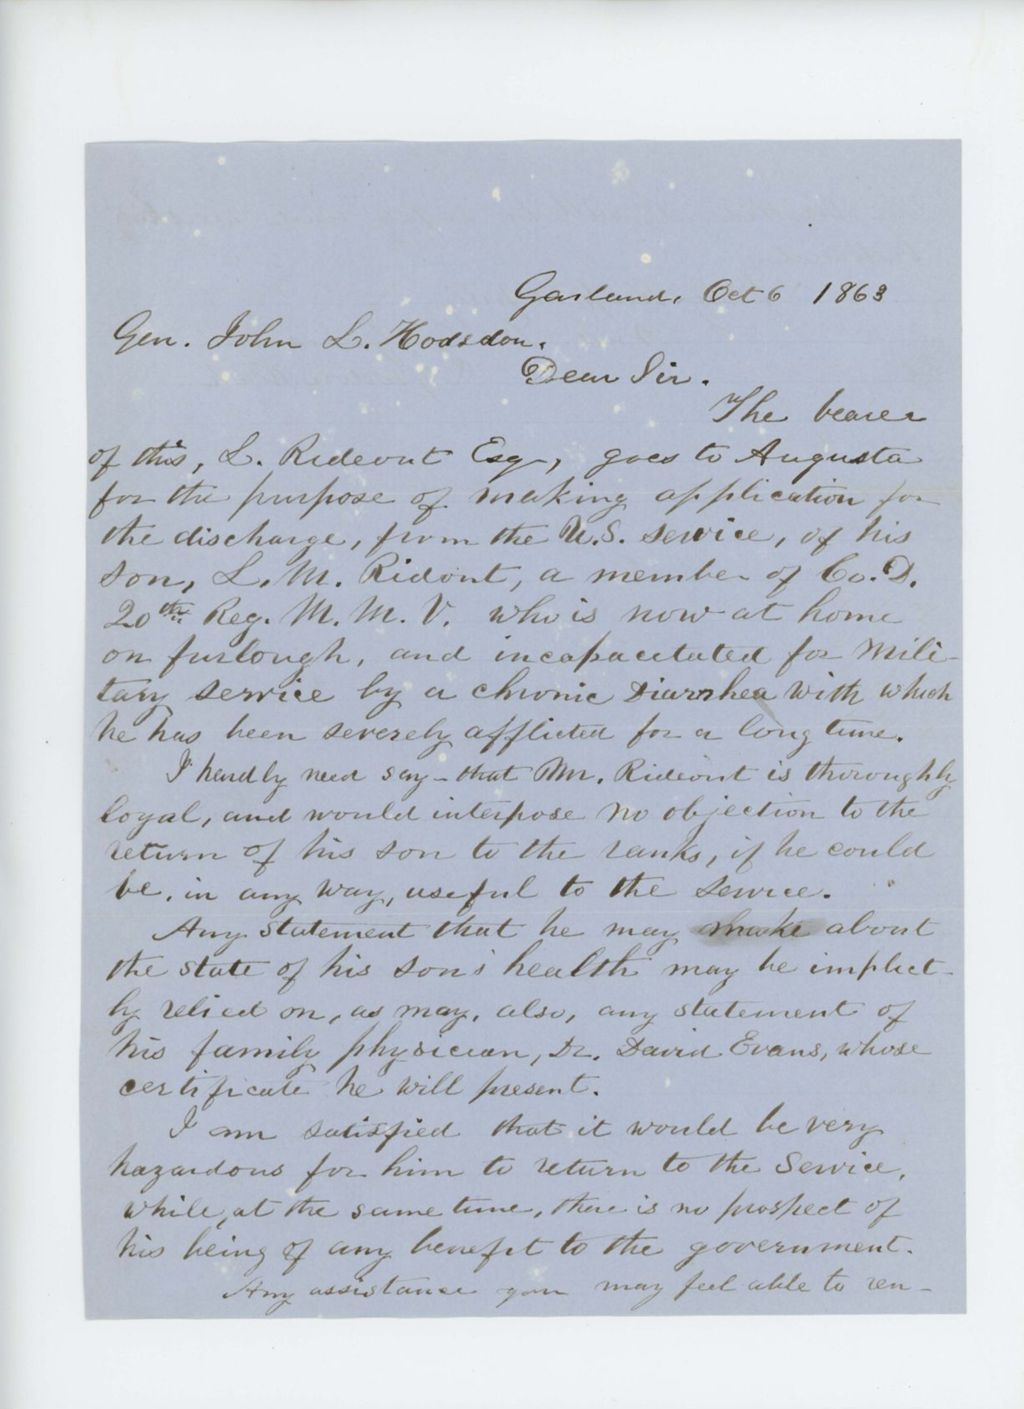 Garland, Oct 6 1863
Gen. John L. Hodsdon.
Dear Sir.
The bearer
of this, L. Rideout Esq, goes to Augusta
for the purpose of making application for
the discharge, from the U.S. service, of his
son, L. M. Ridout, a member of Co. D.
20th Reg. M. M. V. who is now at home
on furlough, and incapacitated for mili-
tary service by a chronic Diarrhea with which
he has been severely afflicted for a long time.
I hardly need say - that Mr. Rideout is thoroughly
loyal, and would interpose no objection to the
return of his son to the ranks, if he could
be, in any way, useful to the service.
Any statement that he may make about
the state of his son's health may be implicit-
ly relied on, as may, also, any statement of
his family physician, Dr. David Evans, whose
certificate he will present.
I am satisfied that it would be very
hazardous for him to return to the Service,
while, at the same time, there is no prospect of
his being of any benefit to the government.
Any assistance you may feel able to ren-